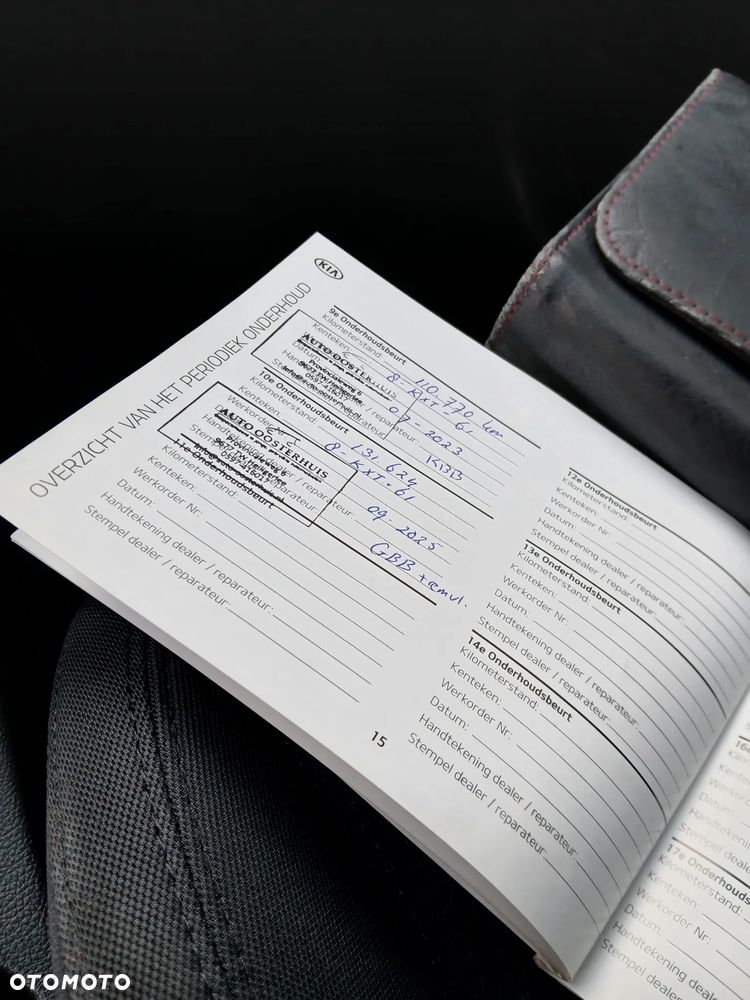 KIA
OVERZICHT VAN HET PERIODIEK ONDERHOUD
9e Onderhoudsbeurt
Kilometerstand: 110.770 km
Kenteken: 8-KXT-61
Datum: 07-2023
KBB
AUTO OOSTERHUIS
Provincialeweg 6
10e Onderhoudsbeurt
Kilometerstand: 131,624
Kenteken: 8-KXT-61
Werkorder
09-2025
Handtekening dealer / reparateur:
GBB + remvl.
AUTO OOSTERHUIS
Provincialeweg 6
11e Onderhoudsbeurt
Kilometerstand:
Kenteken:
Werkorder Nr:
Datum:
Handtekening dealer / reparateur:
Stempel dealer / reparateur:
15
12e Onderhoudsbeurt
Kilometerstand:
Kenteken:
Werkorder Nr:
Datum:
Handtekening dealer / reparateur:
Stempel dealer / reparateur:
13e Onderhoudsbeurt
Kilometerstand:
Kenteken:
Werkorder Nr:
Datum:
Handtekening dealer / reparateur:
Stempel dealer / reparateur:
14e Onderhoudsbeurt
Kilometerstand:
Kenteken:
Werkorder Nr:
Datum:
Handtekening dealer / reparateur:
Stempel dealer / reparateur:
Kenteken:
Werkorder
Datum:
Stempel
17e Onderhouds
Kilometerstand:
Kenteken:
Werkorder Nr:
Datum:
Handtekening
Stempel deal
OTOMOTO